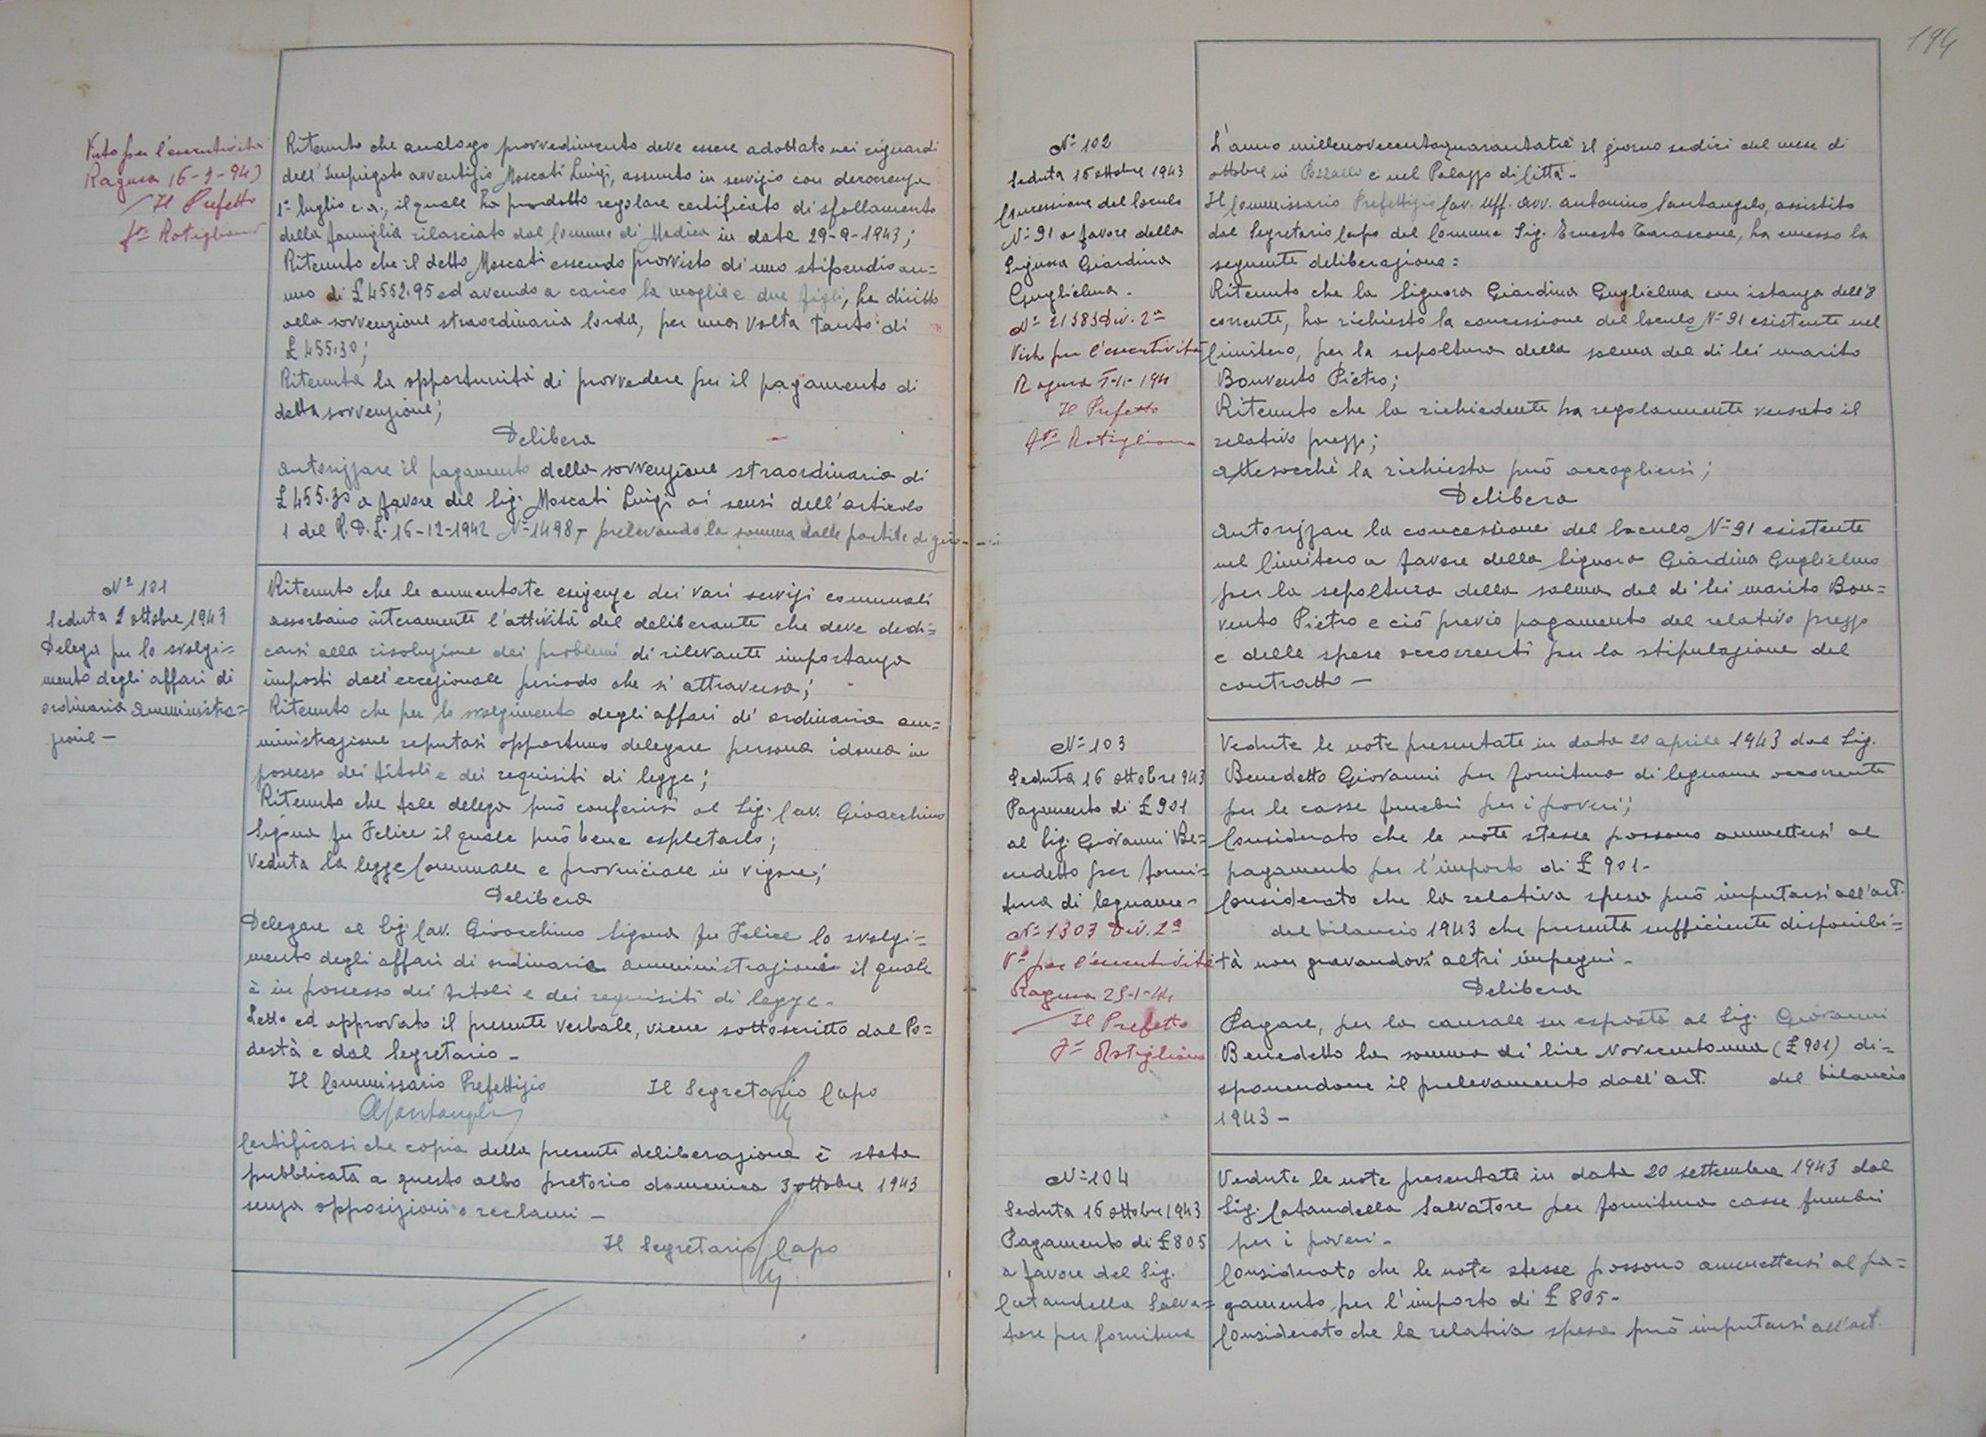 Visto per l'esecutività
Ragusa 16-9-943
Il Prefetto
Fto Rotigliano
Ritenuto che analogo provvedimento deve essere adottato nei riguardi
dell'Impiegato avventizio Moscati Luigi, assunto in servizio con decorrenza
1° luglio c.a., il quale ha prodotto regolare certificato di sfollamento
della famiglia rilasciato dal Comune di Modica in data 29-9-1943;
Ritenuto che il detto Moscati essendo provvisto di uno stipendio an=
nuo di £ 4552.95 ed avendo a carico la moglie e due figli, ha diritto
alla sovvenzione straordinaria lorda, per una volta tanto di
£ 455.30;
Ritenuta la opportunità di provvedere per il pagamento di
detta sovvenzione;
Delibera
Autorizzare il pagamento della sovvenzione straordinaria di
£ 455.30 a favore del Sig. Moscati Luigi ai sensi dell'articolo
1 del R.D.L. 16-12-1942 N° 1498, prelevando la somma dalle partite di
N° 101
Seduta 2 ottobre 1943
Delega per lo svolgi=
mento degli affari di
ordinaria amministra=
zione -
Ritenuto che le aumentate esigenze dei vari servizi comunali
assorbano interamente l'attività del deliberante che deve dedi=
carsi alla risoluzione dei problemi di rilevante importanza
imposti dall'eccezionale periodo che si attraversa;
Ritenuto che per lo svolgimento degli affari di ordinaria am=
ministrazione reputasi opportuno delegare persona idonea in
possesso dei titoli e dei requisiti di legge;
Ritenuto che tale delega può conferirsi al Sig. Cav. Gioacchino
Sigona fu Felice il quale può bene espletarlo;
Veduta la legge Comunale e provinciale in vigore;
Delibera
Delegare al Sig. Cav. Gioacchino Sigona fu Felice lo svolgi=
mento degli affari di ordinaria amministrazione il quale
è in possesso dei titoli e dei requisiti di legge -
Letto ed approvato il presente verbale, viene sottoscritto dal Po=
destà e dal Segretario -
Il Commissario Prefettizio Il Segretario Capo
ASantangelo
Certificasi che copia della presente deliberazione è stata
pubblicata a questo albo pretorio domenica 3 ottobre 1943
senza opposizioni o reclami -
Il Segretario Capo
194
N° 102
Seduta 16 ottobre 1943
Concessione del loculo
N° 91 a favore della
Signora Giardina
Guglielma.
N° 21383 Div. 2a
Visto per l'esecutività
Ragusa
Il Prefetto
Fto Rotigliano
L'anno millenovecentoquarantatrè il giorno sedici del mese di
ottobre in Pozzallo e nel Palazzo di Città -
Il Commissario Prefettizio Cav. Uff. Avv. Antonino Santangelo, assistito
dal Segretario Capo del Comune Sig. Ernesto Tarascone, ha emesso la
seguente deliberazione:
Ritenuto che la Signora Giardina Guglielma con istanza dell'8
corrente, ha richiesto la concessione del loculo N° 91 esistente nel
Cimitero, per la sepoltura della salma del di lei marito
Bonvento Pietro;
Ritenuto che la richiedente ha regolarmente versato il
relativo prezzo;
Attesocchè la richiesta può accogliersi;
Delibera
Autorizzare la concessione del loculo N° 91 esistente
nel Cimitero a favore della Signora Giardina Guglielma
per la sepoltura della salma del di lei marito Bon=
vento Pietro e ciò previo pagamento del relativo prezzo
e delle spese occorrenti per la stipulazione del
contratto -
N° 103
Seduta 16 ottobre 943
Pagamento di £ 901
al Sig. Giovanni Be=
nedetto per forni=
tura di legname -
N° 1303 Div. 2a
V° per l'esecutività
Ragusa 25-1-44
Il Prefetto
Fto Rotigliano
Vedute le note presentate in data 20 aprile 1943 dal Sig.
Benedetto Giovanni per fornitura di legname occorrente
per le casse funebri per i poveri;
Considerato che le note stesse possono ammettersi al
pagamento per l'importo di £ 901-
Considerato che la relativa spesa può imputarsi all'art.
del bilancio 1943 che presenta sufficiente disponibi=
tà non gravandovi altri impegni -
Delibera
Pagare, per la causale su esposta al Sig. Giovanni
Benedetto la somma di lire novecentouna (£ 901) di=
sponendone il prelevamento dall'art. del bilancio
1943 -
N° 104
Seduta 16 ottobre 1943
Pagamento di £ 805
a favore del Sig.
Catandella Salva=
tore per fornitura
Vedute le note presentate in data 20 settembre 1943 dal
Sig. Catandella Salvatore per fornitura casse funebri
per i poveri -
Considerato che le note stesse possono ammettersi al pa=
gamento per l'importo di £ 805-
Considerato che la relativa spesa può imputarsi all'art.